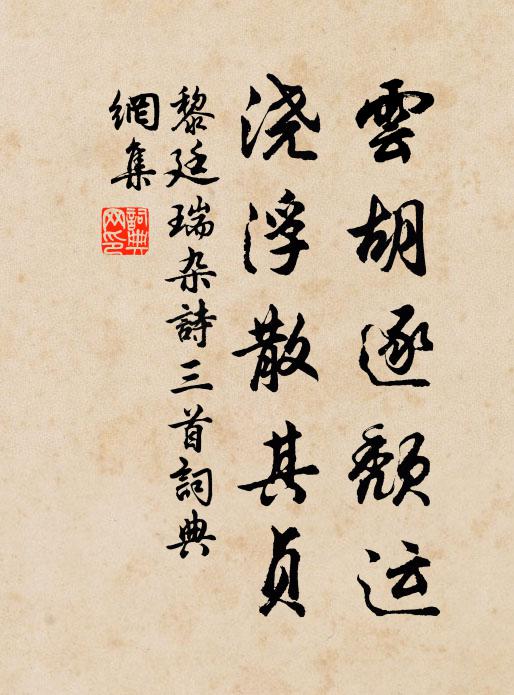 雲胡逐颓运
浇浮散其贞
黎廷瑞杂詩三首詞典
網集
詞典
网印